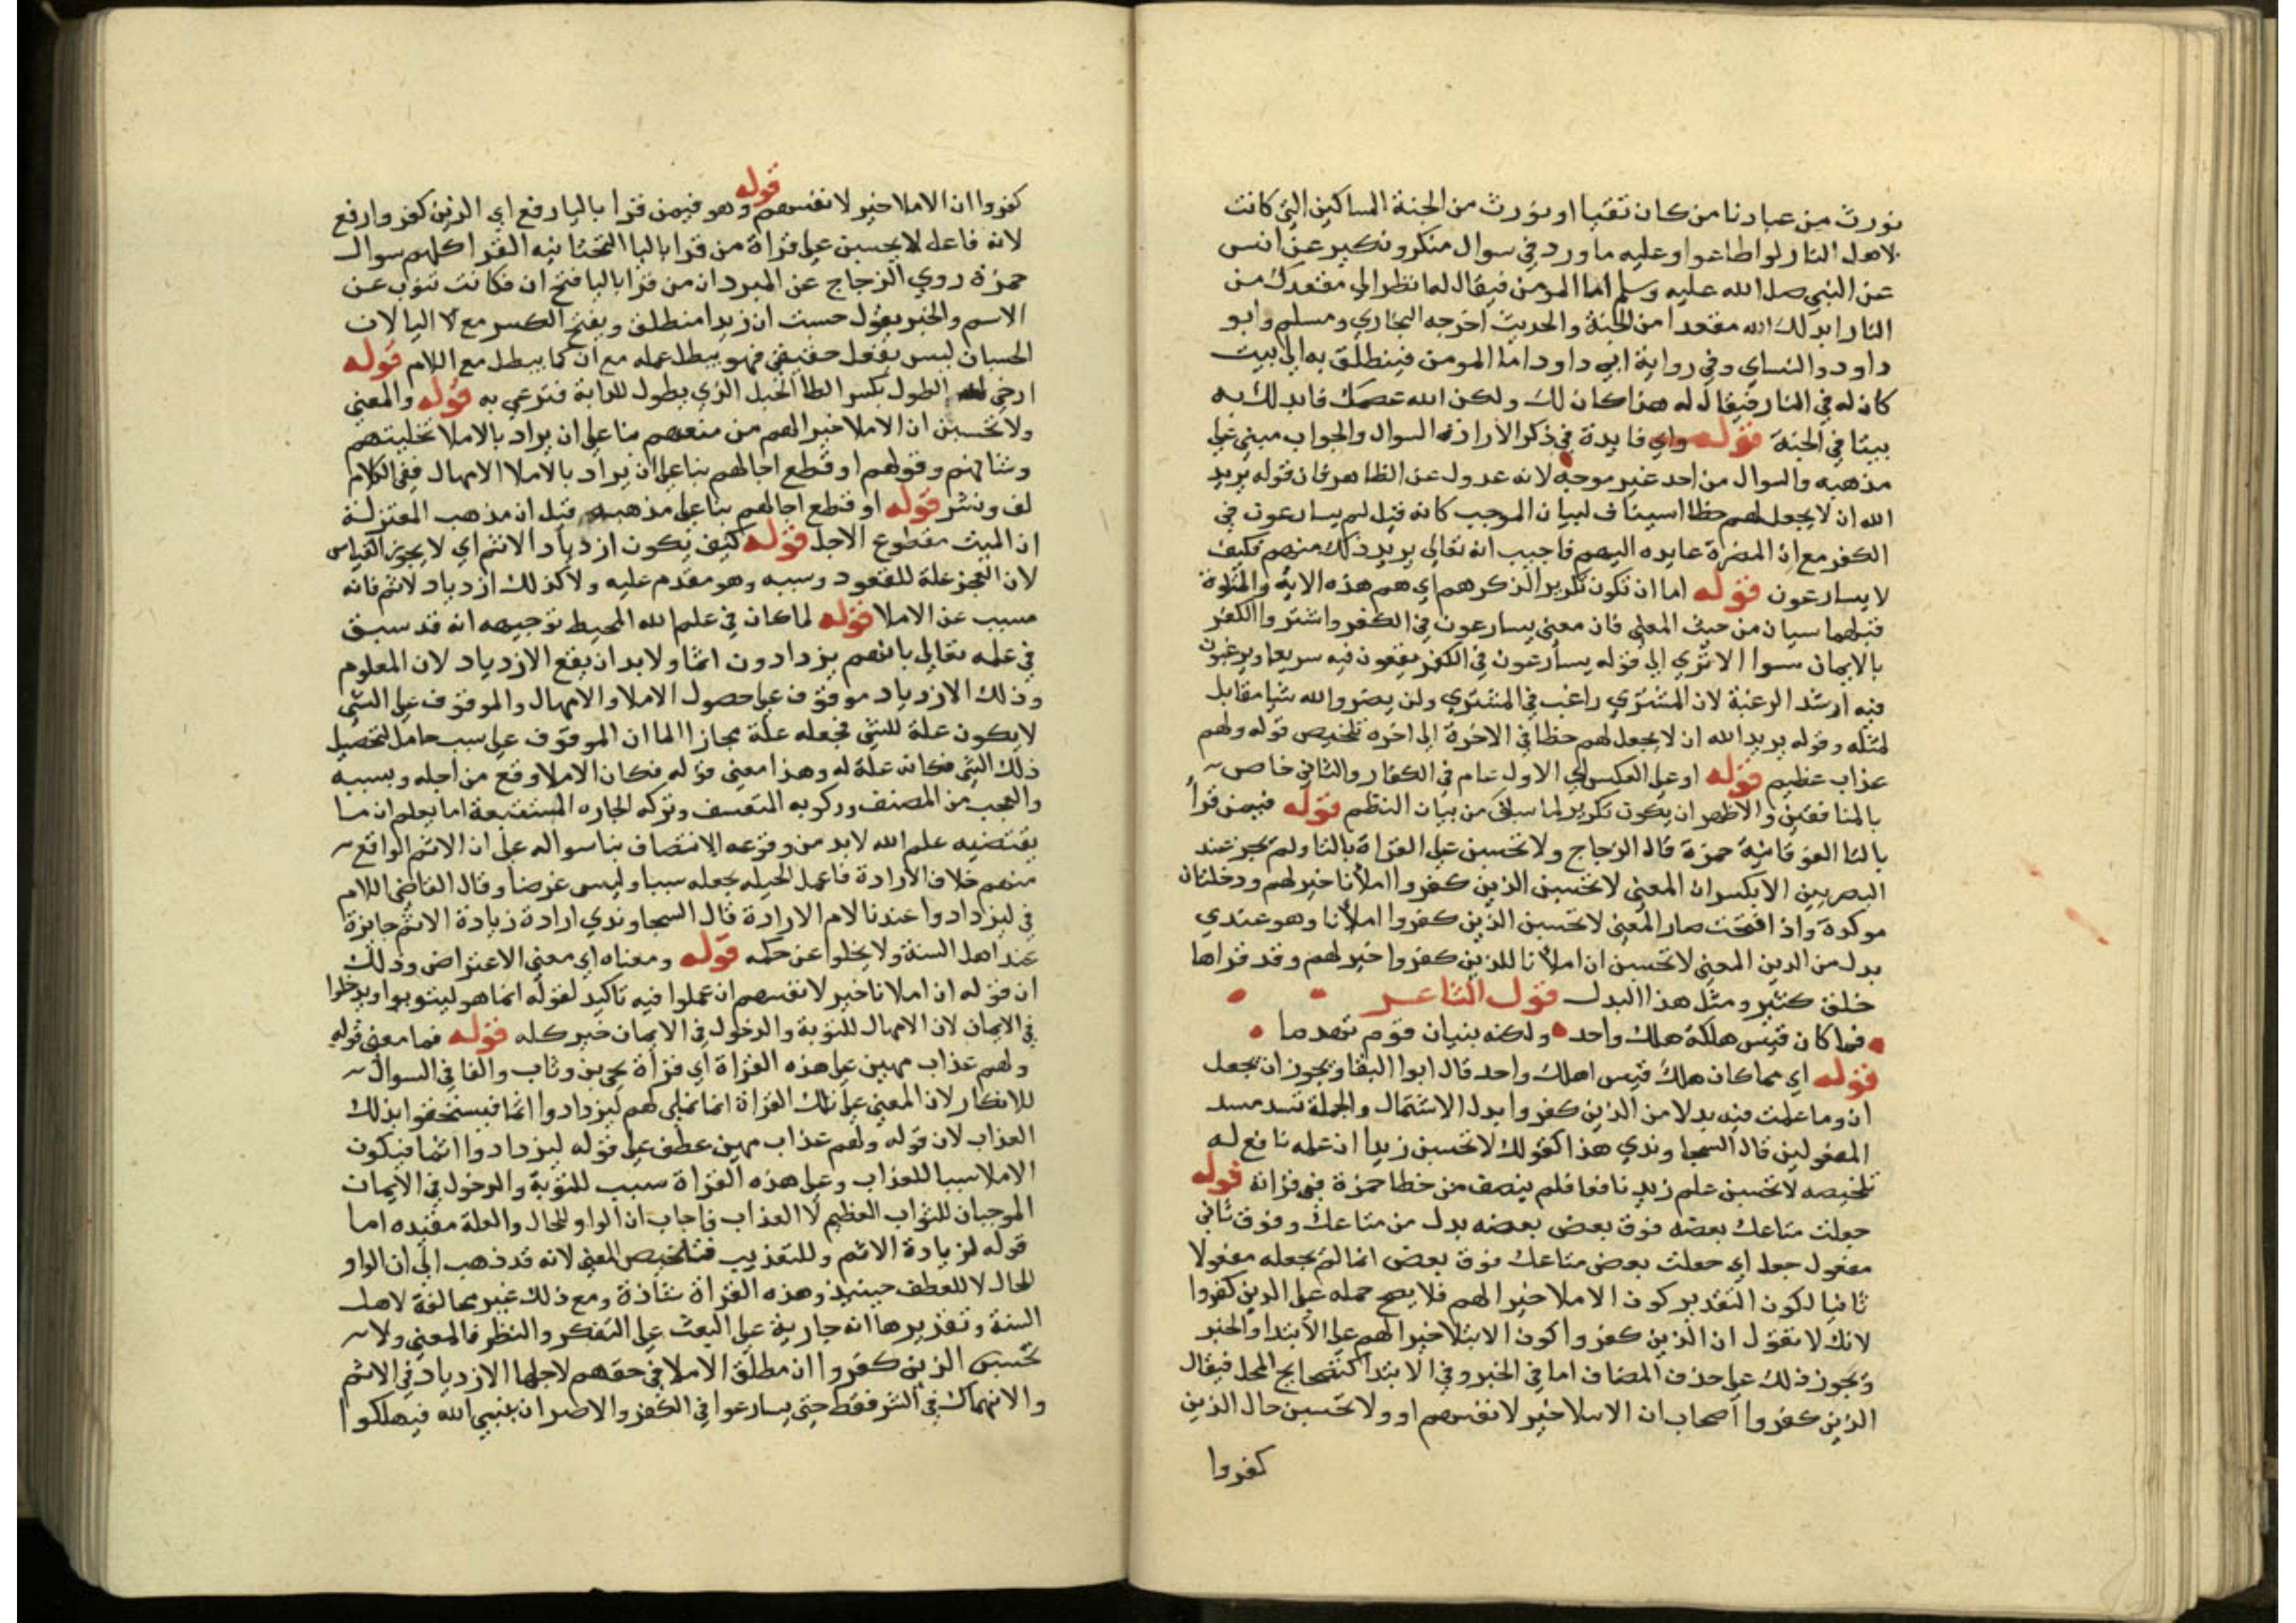 نورث من عبادنا من كان تقيا او نورث من الجنة المساكين التي كانت
لاهل النار لو اطاعوا وعليه ما ورد في سوال منكر ونكير عن انس
عن النبي صلى الله عليه وسلم اما المومن فيقال لما نظر الى مقعدك من
النار ابدلك الله مقعدا من الجنة والحديث اخرجه البخاري ومسلم وابو
داود والنساي وفي رواية ابي داود اما المومن فينطلق به الى بيت
كان له في النار فيقال له هذا كان لك ولكن الله عصمك فابدلك به
بيتا في الجنة قوله واي فايدة في ذكر الارادة السوال والجواب مبني على
مذهبه والسوال من احد غير موجه لانه عدول عن الظاهر فان قوله يريد
الله ان لا يجعل لهم حظا اسيناف لبيان الموجب كانه قيل لم يسارعون في
الكفر مع ان المضرة عايده اليهم فاجيب انه تعالى يريد ذلك منهم فكيف
لا يسارعون قوله اما ان تكون تكريرا لذكرهم اي هم هذه الاية والمتلوة
قبلهما سيان من حيث المعنى فان معنى يسارعون في الكفر واشتروا الكفر
بالايمان سوا الا ترى الى قوله يسارعون في الكفر يقعون فيه سريعا ويرغبون
فيه ارشد الرغبة لان المشتري راغب في المشترى ولن يضروا الله شيا مقابل
لمثله وقوله يريد الله ان لا يجعل لهم حظا في الاخرة الى اخره تلخيص قوله ولهم
عذاب عظيم قوله او على العكس اي الاول عام في الكفار والثاني خاص
بالمنافقين والاظهر ان يكون تكريرا لما سبق من بيان النظم قوله فيمن قرا
بالتا الفوقانية حمزة قال الزجاج ولا تحسبن على القراة بالتا ولم يجز عند
البصريين الا بكسر ان المعنى لا تحسبن الذين كفروا املانا خير لهم ودخلت ان
موكدة واذا فتحت صار المعنى لا تحسبن الذين كفروا املانا وهو عندي
بدل من الذين المعنى لا تحسبن ان املانا للذين كفروا خير لهم وقد قراها
خلق كثير ومثل هذا البدل قول الشاعر
فما كان قيس هلكه هلك واحد ولكنه بنيان قوم تهدما
قوله اي مما كان هلك قيس اهلك واحد قال ابوا البقا ويجوز ان تجعل
ان وما عملت فيه بدلا من الذين كفروا بدل الاشتمال والجملة تسد مسد
المفعولين قال السجاوندي هذا كقولك لا تحسبن زيدا ان علمه نافع له
تلخيصه لا تحسبن علم زيد نافعا فلم ينصف من خطا حمزة في قراته قوله
جعلت متاعك بعضه فوق بعض بعضه بدل من متاعك وفوق ثاني
مفعول جعل اي جعلت بعض متاعك فوق بعض انما لم يجعله مفعولا
ثانيا لكون التقدير كون الاملا خيرا لهم فلا يصح حمله على الذين كفروا
لانك لا تقول ان الذين كفروا كون الابتلا خيرا لهم على الابتدا والخبر
ويجوز ذلك على حذف المضاف اما في الخبر وفي الابتدا المحل فيقال
الذين كفروا اصحاب ان الاملا خير لانفسهم او ولا تحسبن حال الذين
كفروا
كفروا ان الاملا خير لانفسهم قوله وهو فيمن قرا باليا رفع اي الذين كفروا رفع
لانه فاعل لا يحسبن على قراة من قرا باليا التحتانيه القرا كلهم سوال
حمزة روي الزجاج عن المبرد ان من قرا باليا فتح ان فكانت تنوب عن
الاسم والخبر يقول حسبت ان زيدا منطلق ويفتح الكسر مع لا اليا لان
الحسبان ليس بفعل حقيقي فهو يبطل عمله مع ان كما يبطل مع اللام قوله
ارخى له الطول بكسر الطا الحبل الذي يطول للدابة فترعى به قوله والمعنى
ولا تحسبن ان الاملا خير الهم من منعهم بنا على ان يراد بالاملا تخليتهم
وشانهم وقولهم او قطع اجالهم بنا على ان يراد بالاملا الامهال ففي الكلام
لف ونشر قوله او قطع اجالهم بنا على مذهبه قيل ان مذهب المعتزلة
ان الميت مقطوع الاجل قوله كيف يكون ازدياد الاثم اي لا يجوز القياس
لان العجز علة للقعود وسببه وهو مقدم عليه ولا كذلك ازدياد الاثم فانه
مسبب عن الاملا قوله لما كان في علم الله المحيط توجيهه انه قد سبق
في علمه تعالى بانهم يزدادون اثما ولا بد ان يقع الازدياد لان المعلوم
وذلك الازدياد موقوف على حصول الاملا والامهال والموقوف على الشي
لا يكون علة للشي فجعله علة مجازا لما ان الموقوف على سبب حامل لتحصيل
ذلك الشي فكانه علة له وهذا معنى قوله فكان الاملا وقع من اجله وبسببه
والعجب من المصنف وركوبه التعسف وتركه الجاده المستقيمة اما يعلم ان ما
يقتضيه علم الله لا بد من وقوعه الانتصاف بنا سواله على ان الاثم الواقع
منهم خلاف الارادة فاعمل الحيله بجعله سببا وليس غرضا وقال القاضي اللام
في ليزدادوا عندنا لام الارادة قال السجاوندي ارادة زيادة الاثم جايزة
عند اهل السنة ولا يخلوا عن حكمه قوله ومعناه اي معنى الاعتراض وذلك
ان قوله ان املانا خير لانفسهم ان عملوا فيه تاكيد لقوله انما هو ليتوبوا ويدخلوا
في الايمان لان الامهال للتوبة والدخول في الايمان خير كله قوله فما معنى قوله
ولهم عذاب مهين على هذه القراة اي قراة يحيى بن وثاب والفا في السوال
للانكار لان المعنى على تلك القراة انما نملي لهم ليزدادوا اثما فيستحقوا بذلك
العذاب لان قوله ولهم عذاب مهين عطف على قوله ليزدادوا اثما فيكون
الاملا سببا للعذاب وعلى هذه القراة سبب للتوبة والدخول في الايمان
الموجبان للثواب العظيم لا العذاب فاجاب ان الواو للحال والعلة مقيده اما
قوله لزيادة الاثم وللتعذيب فتلخيص المعنى لانه قد ذهب الى ان الواو
للحال لا للعطف حينيذ وهذه القراة شاذة ومع ذلك غير مخالفة لاهل
السنة وتقديرها انه جارية على البعث على التفكر والنظر فالمعنى ولا
تحسبن الذين كفروا ان مطلق الاملا في حقهم لاجلها الازدياد في الاثم
والانهماك في الشر فقط حتى يسارعوا في الكفر والاضرار بنبي الله فيهلكوا